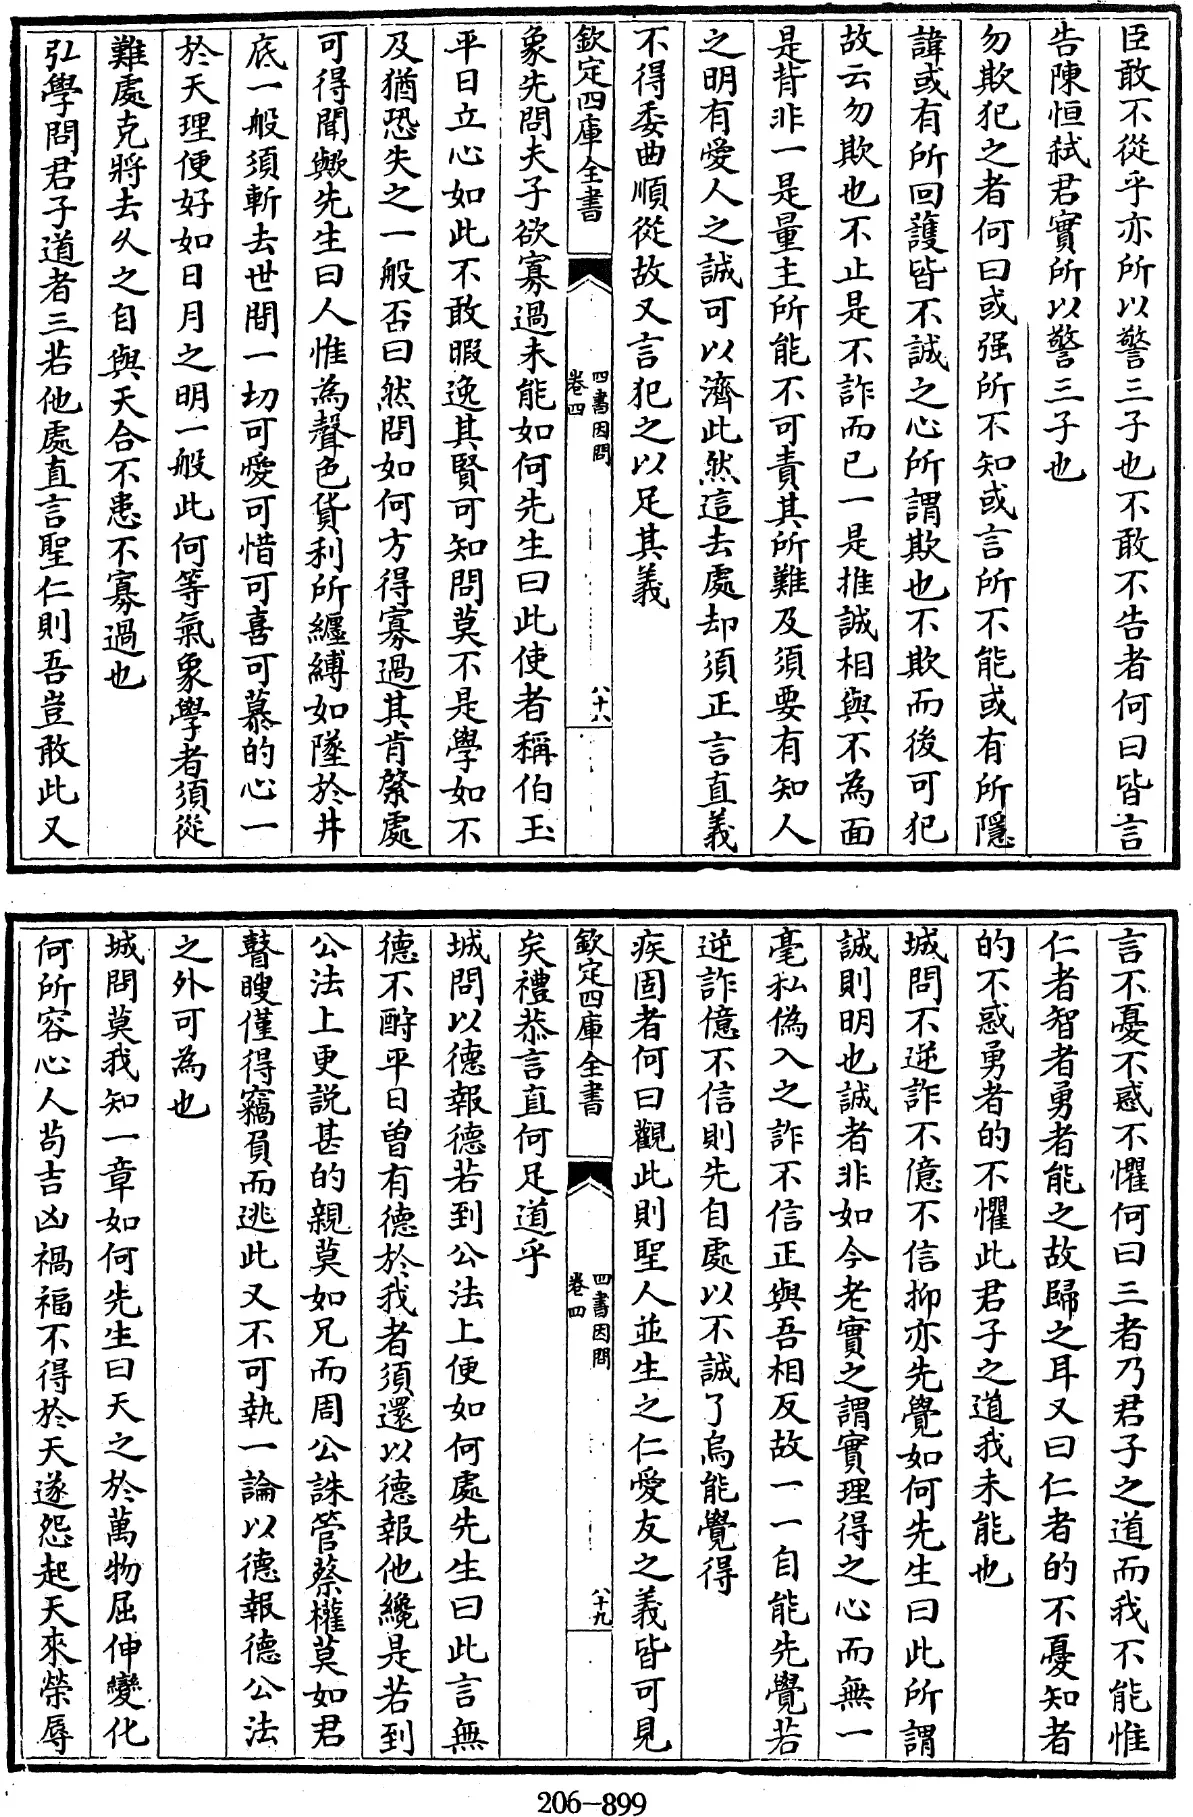 臣敢不從乎亦所以警三子也不敢不告者何曰皆言
告陳恒弑君實所以警三子也
勿欺犯之者何曰或强所不知或言所不能或有所隱
諱或有所回護皆不誠之心所謂欺也不欺而後可犯
故云勿欺也不止是不詐而已一是推誠相與不為面
是背非一是量主所能不可責其所難及須要有知人
之明有愛人之誠可以濟此然這去處却須正言直義
不得委曲順從故又言犯之以足其義
欽定四庫全書
四書因問
卷四
八十八
象先問夫子欲寡過未能如何先生曰此使者稱伯玉
平日立心如此不敢暇逸其賢可知問莫不是學如不
及猶恐失之一般否曰然問如何方得寡過其肯綮處
可得聞歟先生曰人惟為聲色貨利所纒縛如墜於井
底一般須斬去世間一切可愛可惜可喜可慕的心一
於天理便好如日月之明一般此何等氣象學者須從
難處克將去久之自與天合不患不寡過也
弘學問君子道者三若他處直言聖仁則吾豈敢此又
言不憂不惑不懼何曰三者乃君子之道而我不能惟
仁者智者勇者能之故歸之耳又曰仁者的不憂知者
的不惑勇者的不懼此君子之道我未能也
城問不逆詐不億不信抑亦先覺如何先生曰此所謂
誠則明也誠者非如今老實之謂實理得之心而無一
毫私偽入之詐不信正與吾相反故一一自能先覺若
逆詐億不信則先自處以不誠了烏能覺得
疾固者何曰觀此則聖人並生之仁愛友之義皆可見
欽定四庫全書
四書因問
卷四
八十九
矣禮恭言直何足道乎
城問以德報德若到公法上便如何處先生曰此言無
德不酧平日曽有德於我者須還以德報他纔是若到
公法上更説甚的親莫如兄而周公誅管蔡權莫如君
瞽瞍僅得竊負而逃此又不可執一論以德報德公法
之外可為也
城問莫我知一章如何先生曰天之於萬物屈伸變化
何所容心人茍吉凶禍福不得於天遂怨起天來榮辱
206-899